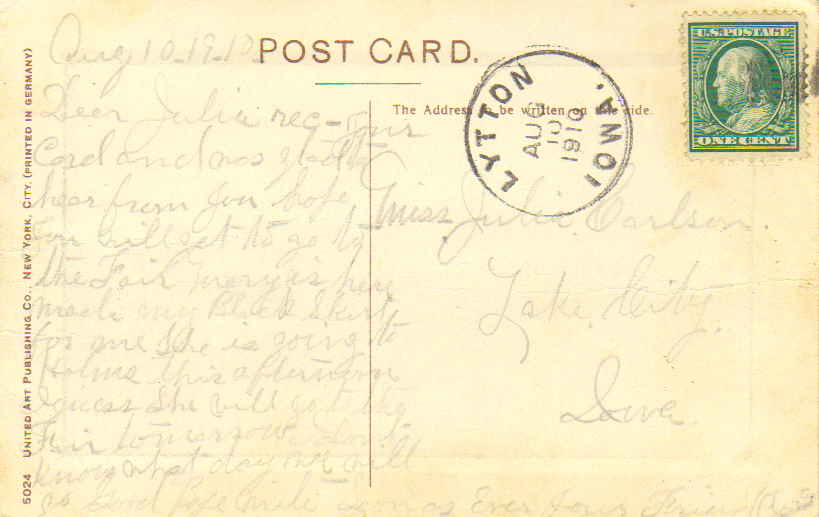 Aug 10 - 1910
POST CARD.
The Address to be written on this side.
U.S. POSTAGE
ONE CENT
LYTTON
IOWA.
AUG
10
1910
Dear Julia rec- your
Card and was glad to
hear from you hope
you will get to go to
the Fair mary is here
made my Black Skirt
for me She is going to
Holme this afternoon
I guess She will go to the
Fair tomorrow dont
know what day we will
go Good bye write soon as Ever your Friend
Miss Julia Carlson.
Lake City.
Iowa
5024 UNITED ART PUBLISHING CO., NEW YORK, CITY. (PRINTED IN GERMANY)